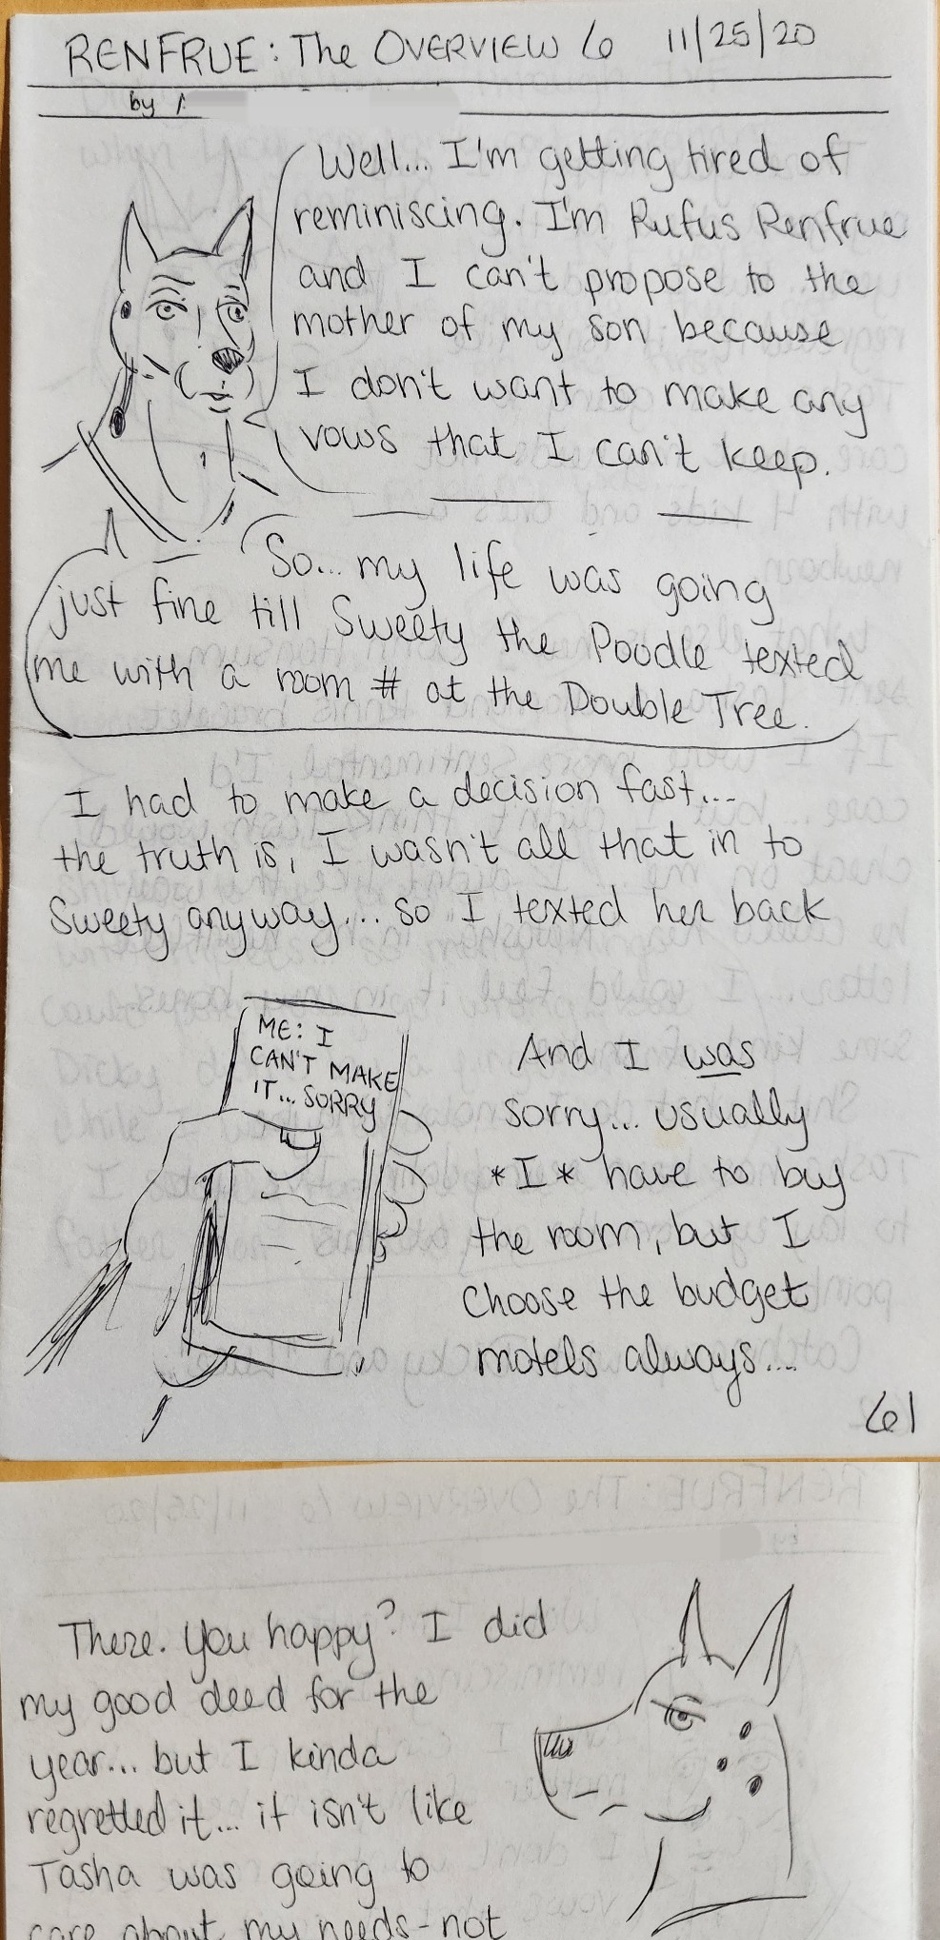 RENFRUE: The OVERVIEW 6 11/25/20
by
Well... I'm getting tired of
reminiscing. I'm Rufus Renfrue
and I can't propose to the
mother of my son because
I don't want to make any
vows that I can't keep.
So... my life was going
just fine till Sweety the Poodle texted
me with a room # at the Double Tree.
I had to make a decision fast...
the truth is, I wasn't all that in to
Sweety anyway... so I texted her back
ME: I
CAN'T MAKE
IT... SORRY
And I was
sorry... usually
*I* have to buy
the room, but I
choose the budget
motels always....
61
There. You happy? I did
my good deed for the
year... but I kinda
regretted it... it isn't like
Tasha was going to
care about my needs-not